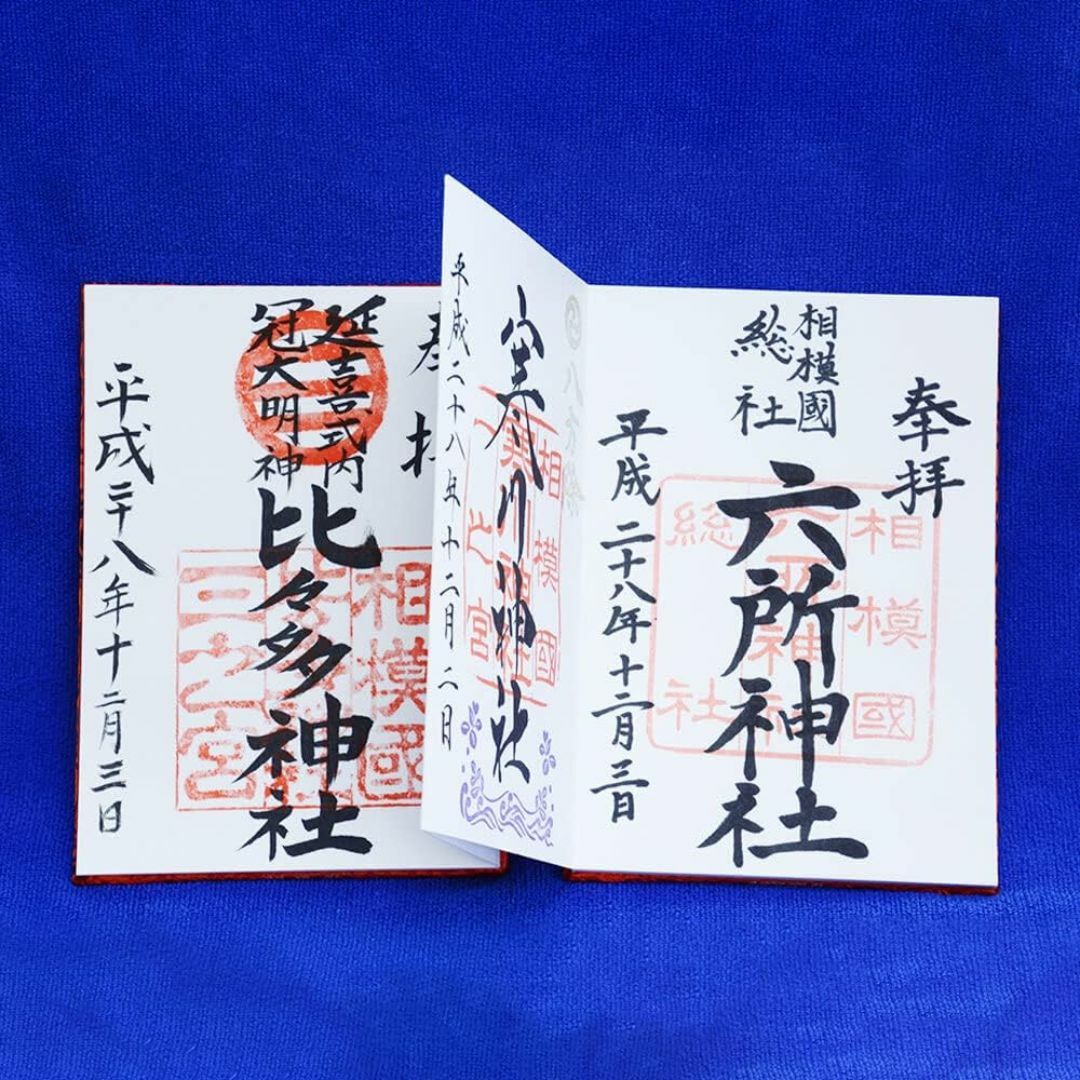 奉拝
相模國
総社
六所神社
平成二十八年十二月三日
相模國
六所神社
総社
寒川神社
相模國
寒川神社
一之宮
平成二十八年十二月二日
奉拝
延喜式内
冠大明神
比々多神社
相模國
三之宮
平成二十八年十二月三日